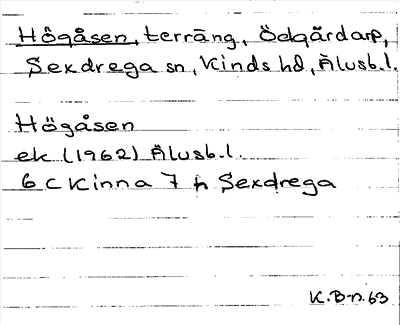 Högåsen, terräng, Ödgärdarp,
Sexdrega sn, Kinds hd, Älvsb.l.
Högåsen
ek (1962) Älvsb.l.
6 C Kinna 7 h Sexdrega
K.B-n. 63